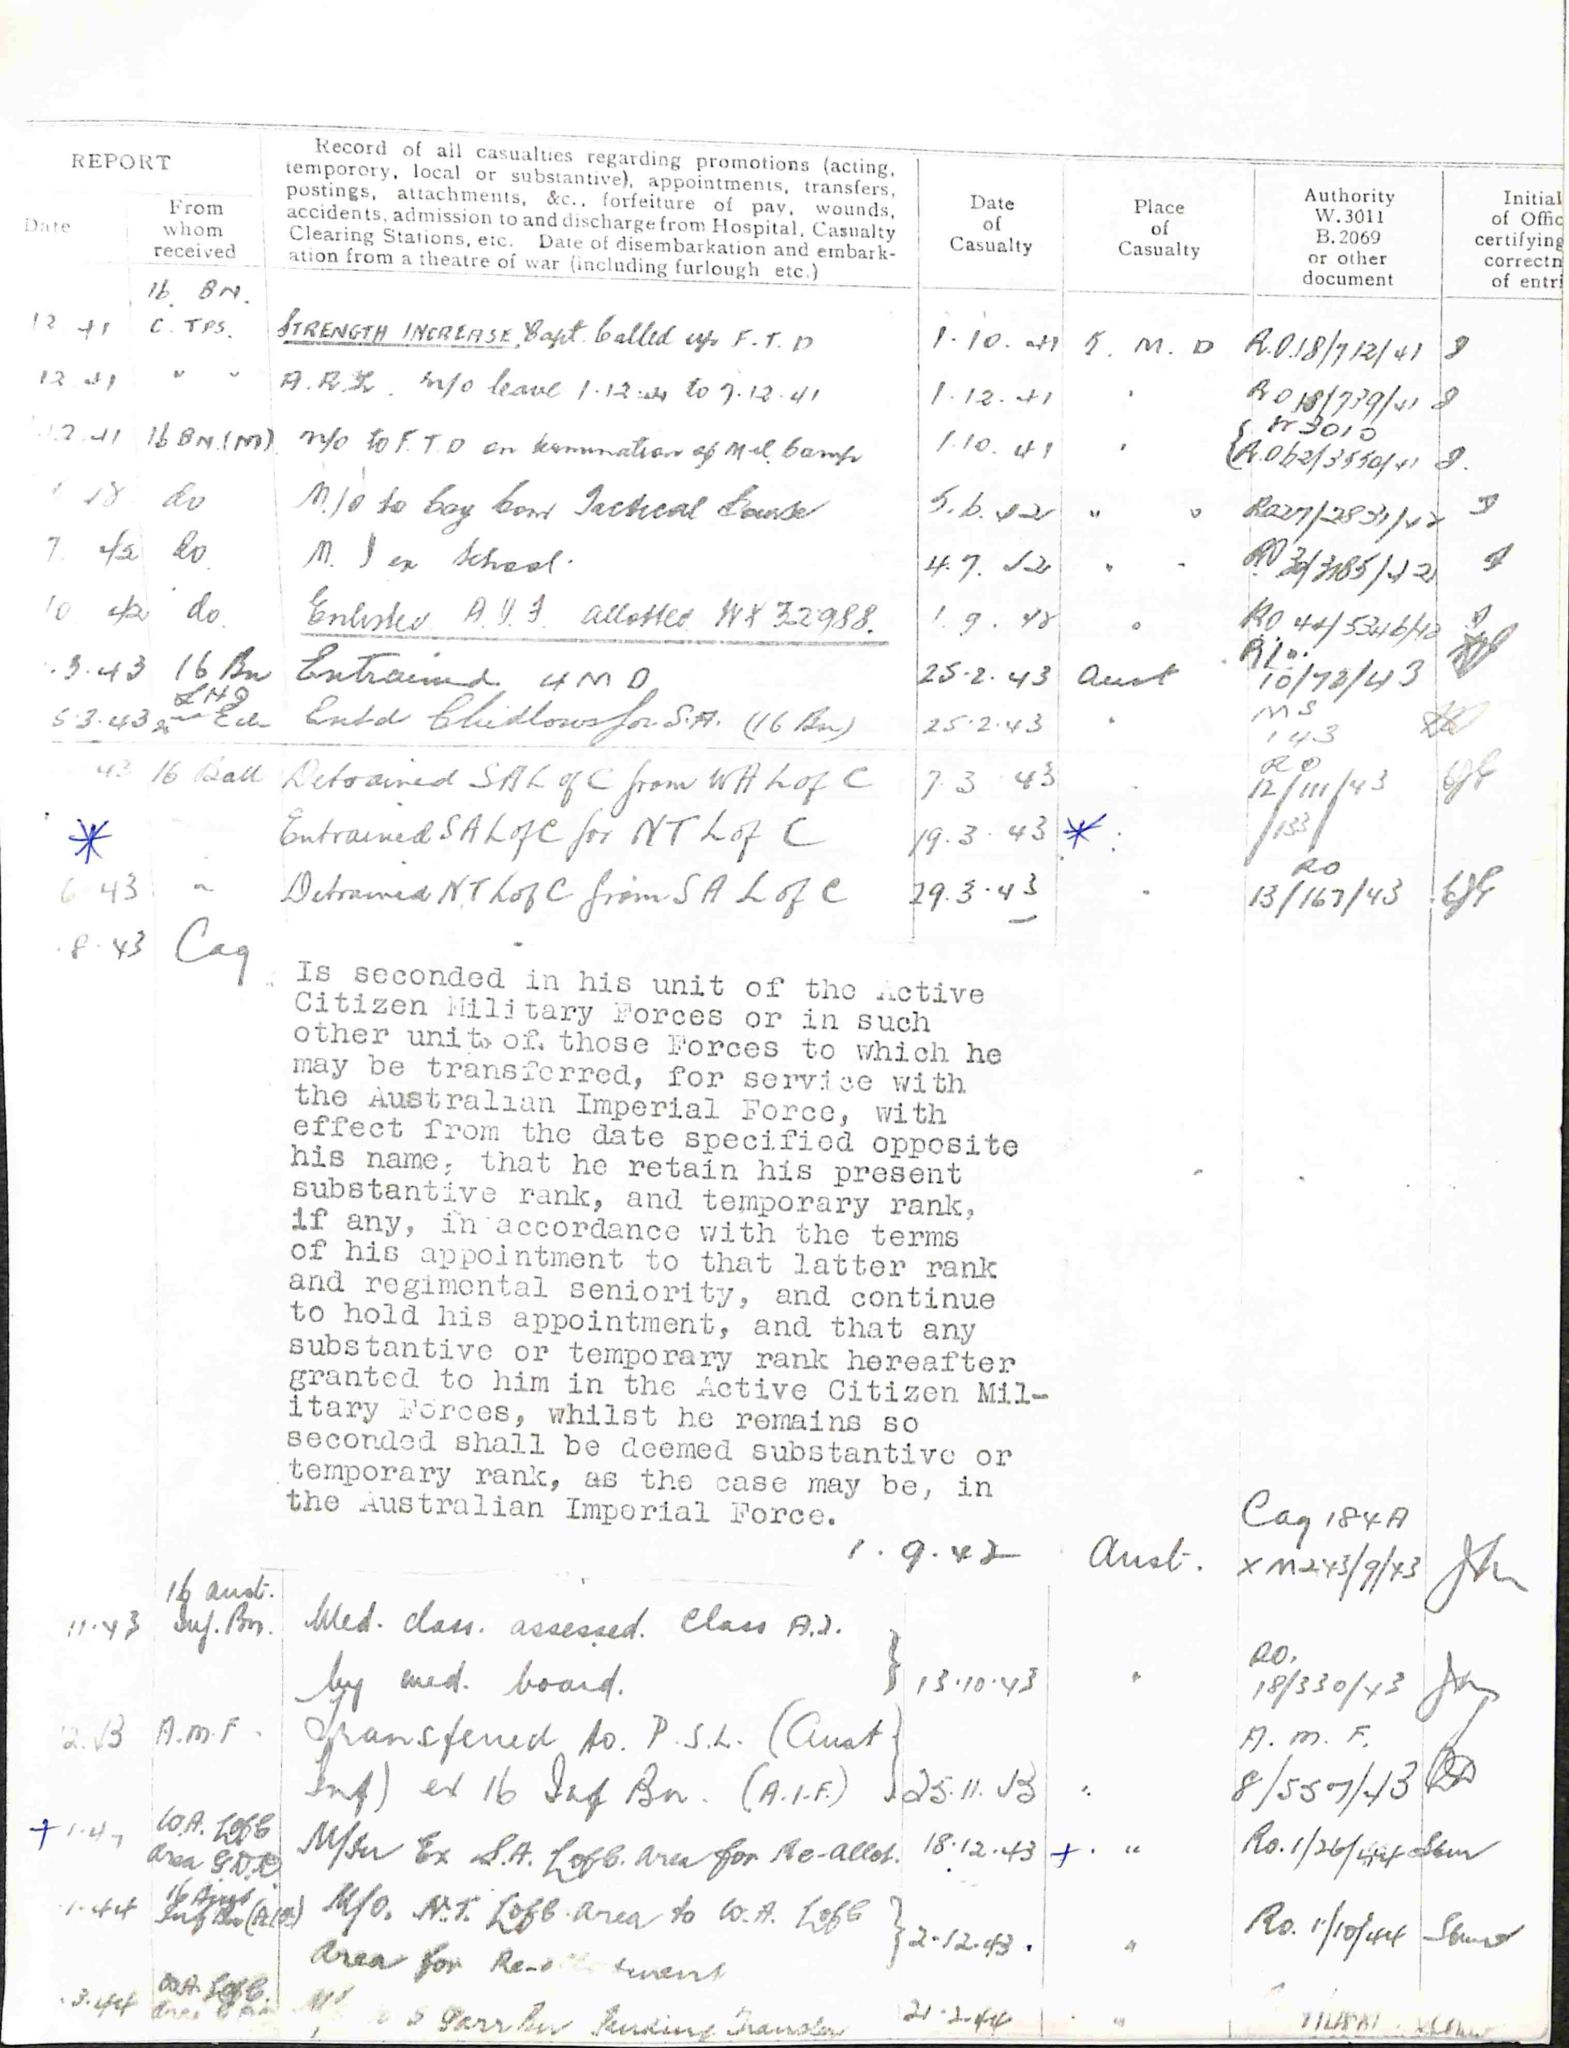 REPORT
Date
From
whom
received
Record of all casualties regarding promotions (acting,
temporory, local or substantive), appointments, transfers,
postings, attachments, &c., forfeiture of pay, wounds,
accidents, admission to and discharge from Hospital, Casualty
Clearing Stations, etc. Date of disembarkation and embark-
ation from a theatre of war (including furlough etc.)
Date
of
Casualty
Place
of
Casualty
Authority
W.3011
B.2069
or other
document
Initial
of Offic
certifying
correctn
of entri
16 BN.
12 41 C. TPS. STRENGTH INCREASE Capt. Called up F.T.D 1.10.41 5. M. D R.O.18/712/41
12 41 " " A.R.L. M/O leave 1.12.41 to 7.12.41 1.12.41 " R.O 18/739/41
W 3010
12.41 16 BN.(M) M/O to F.T.D on termination of Mil. Camp 1.10.41 " R.O 62/3550/41
do M/O to Tactical 5.6.42 " " RO27/2831/42
7 42 do M. I ex School. 4.7.42 " " RO 30/3185/42
10 42 do. Enlisted A.I.F allotted WX32988. 1.9.42 " RO 44/5346/42
R/O.
.3.43 16 Bn Entrained 4 M D 25.2.43 Aust 10/72/43
LHQ
5.3.43 2 Ech Entd Chidlows for S.A. (16 Bn) 25.2.43 " MS
143
RO
43 16 Batt Detrained SAL of C from WAL of C 7.3 43 " 12/111/43
* Entrained SAL of C for NT L of C 19.3.43 * /133/
RO
6 43 " Detrained N.T L of C from S A L of C 29.3.43 " 13/167/43
.8.43 Cag
Is seconded in his unit of the Active
Citizen Military Forces or in such
other unit of those Forces to which he
may be transferred, for service with
the Australian Imperial Force, with
effect from the date specified opposite
his name, that he retain his present
substantive rank, and temporary rank,
if any, in accordance with the terms
of his appointment to that latter rank
and regimental seniority, and continue
to hold his appointment, and that any
substantive or temporary rank hereafter
granted to him in the Active Citizen Mil-
itary Forces, whilst he remains so
seconded shall be deemed substantive or
temporary rank, as the case may be, in
the Australian Imperial Force.
Cag 184A
1.9.42 Aust. XM243/9/43
16 Aust.
11.43 Inf. Bn. Med. class. assessed. Class A.2.
by med. board. 13.10.43 " RO.
18/330/43
12.43 A.M.F. Transferred to. P.S.L. (Aust A. M. F.
Inf) ex 16 Inf Bn. (A.I.F.) 25.11.43 " 8/557/43
+ W.A. Lofc
Area G.D.D M/In Ex S.A. Lofc. Area for Re-allot. 18.12.43 + " Ro. 1/26/44
16 Aust
1.44 Inf Bn (AIF) M/O. N.T. Lofc area to W.A. Lofc
Area for 2.12.43. " Ro. 1/10/44
.3.44 W.A. Lofc. Pending Transfer 21.2.44 "